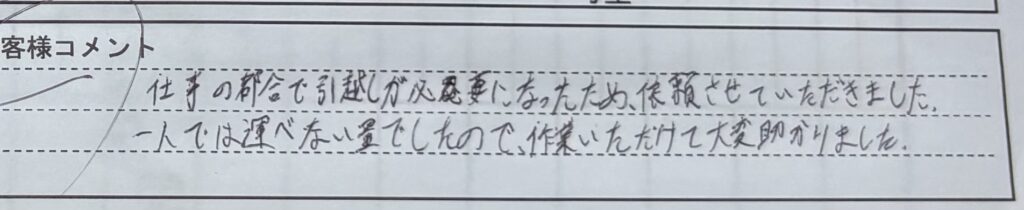 客様コメント
仕事の都合で引越しが必要になったため、依頼させていただきました。
一人では運べない量でしたので、作業いただけて大変助かりました。